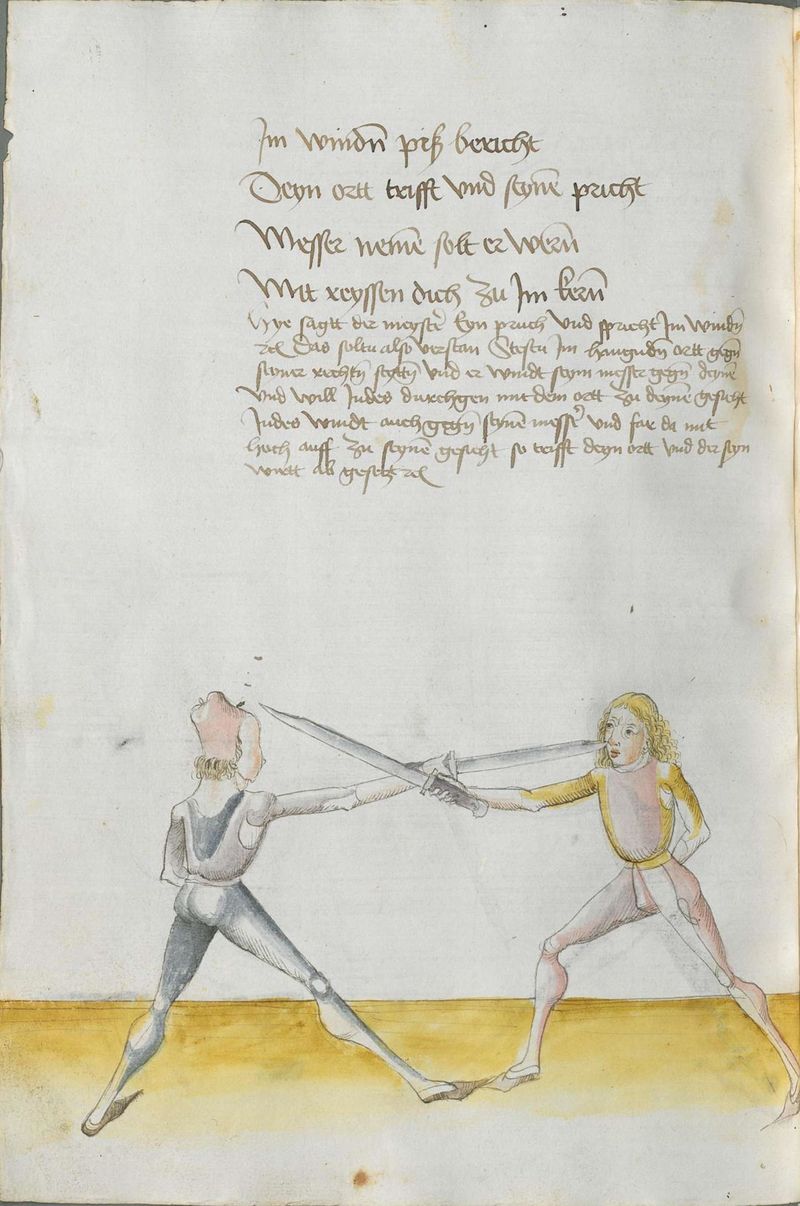 Im windn̄ piß bericht
Deyn ortt trifft vnd seynē pricht
Messer nemē solt er wern̄
Mit reyssen dich zu Im kern̄
Hye sagtt der meystē Eyn pruch vnd spricht Im windn̄
Das soltu also verstan Stestu Im hangndn̄ ortt gegn̄
seiner rechtn̄ seyttn̄ vnd er windt seyn messer gegn̄ deynē
vnd will Indes durchgen mit dem ortt zu deynē gesicht
Indes windt auch gegn̄ seynē messer vnd far da mit
hoch auff zu seynē gesicht so trifft deyn ortt vnd der seyn
wirtt ab gesetzt